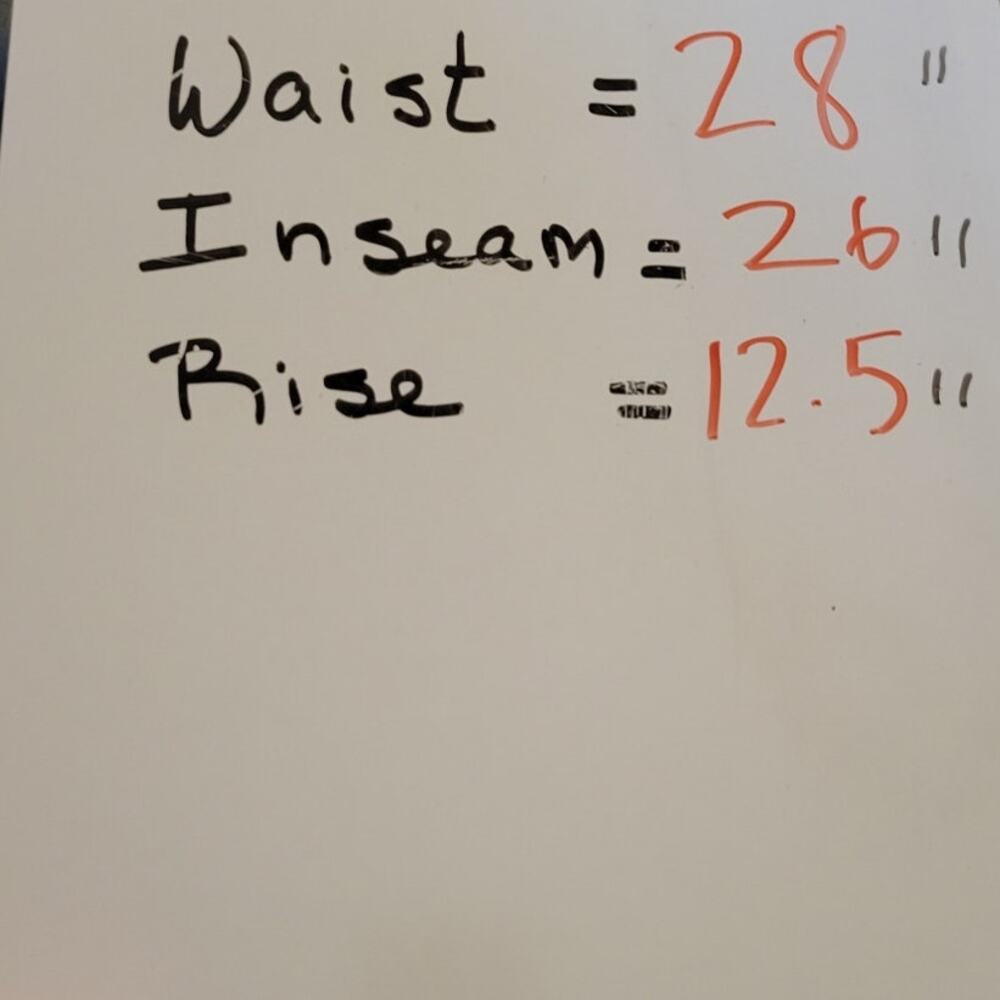 Waist = 28 "
Inseam = 26 "
Rise = 12.5 "